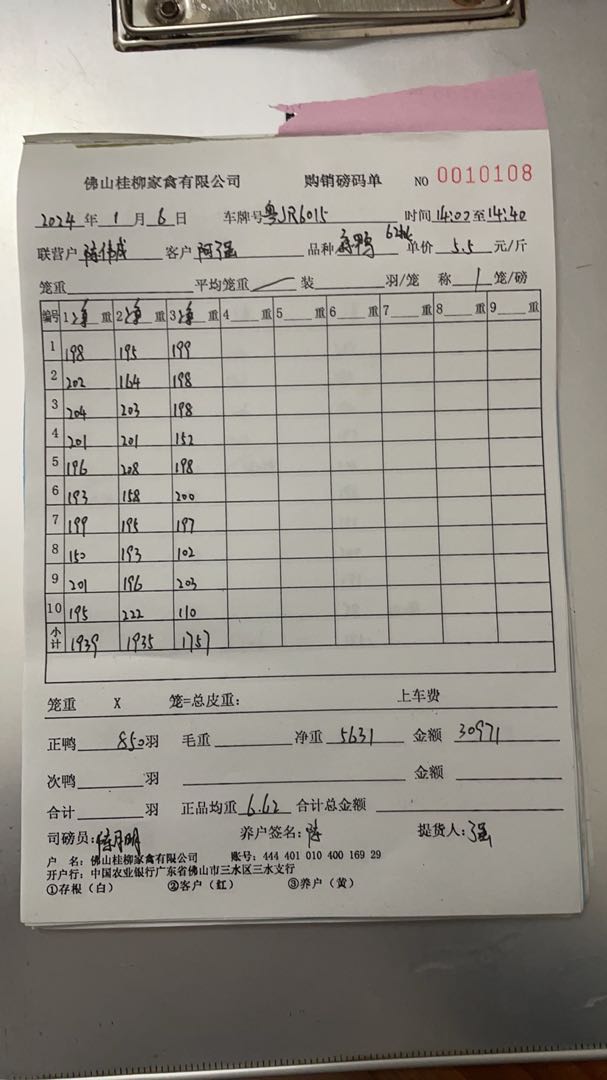 佛山桂柳家禽有限公司 购销磅码单 NO 0010108
2024 年 1 月 6 日 车牌号 粤JR6015 时间 14:02 至 14:40
联营户 陈伟成 客户 阿强 品种 鸭 单价 5.5 元/斤
笼重 平均笼重 装 羽/笼 称 1 笼/磅
编号 1 净 重 2 净 重 3 净 重 4 重 5 重 6 重 7 重 8 重 9 重
1 198 195 199
2 202 164 198
3 204 203 198
4 201 201 152
5 196 208 198
6 193 158 200
7 199 195 197
8 150 193 102
9 201 196 203
10 195 222 110
小计 1939 1935 1757
笼重 X 笼=总皮重: 上车费
正鸭 850 羽 毛重 净重 5631 金额 30971
次鸭 羽 金额
合计 羽 正品均重 6.62 合计总金额
司磅员: 养户签名: 陈 提货人: 强
户 名: 佛山桂柳家禽有限公司 账号: 444 401 010 400 169 29
开户行: 中国农业银行广东省佛山市三水区三水支行
①存根（白） ②客户（红） ③养户（黄）